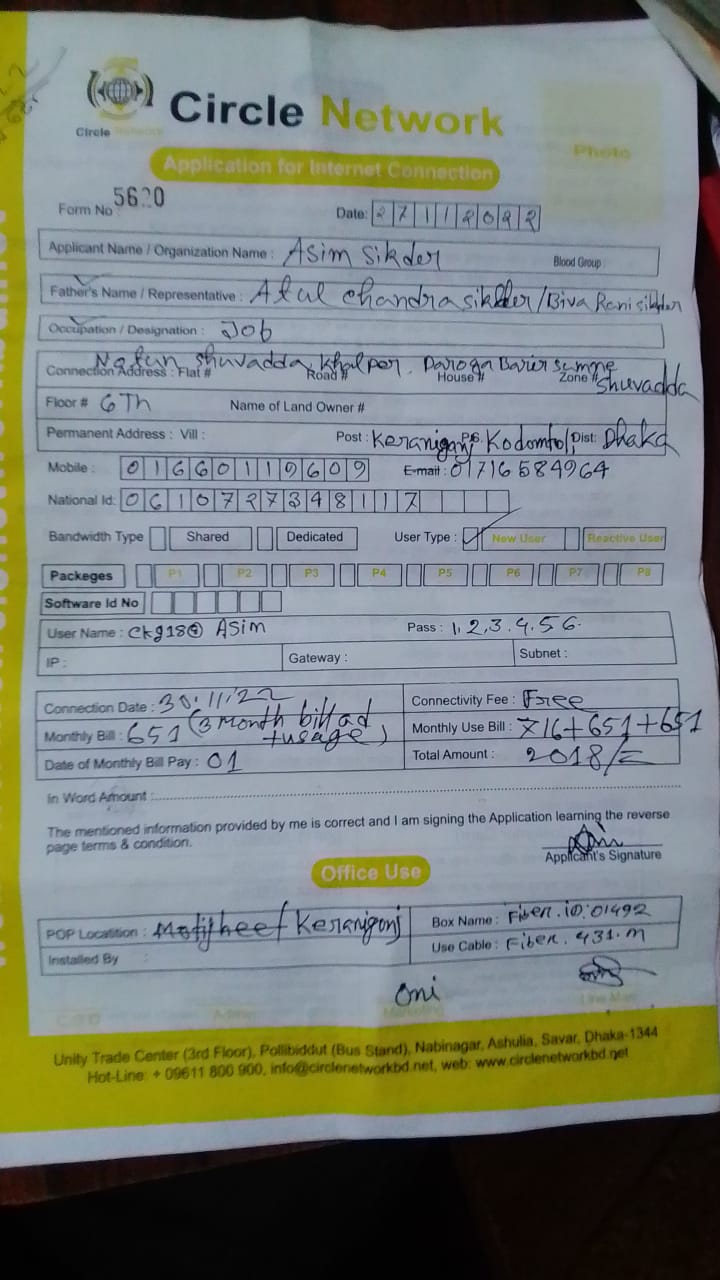 Circle Network
Circle Network
Photo
Application for Internet Connection
Form No 5620
Date: 27112022
Applicant Name / Organization Name : Asim Sikder
Blood Group :
Father's Name / Representative : Atul Chandra sikder/Biva Rani sikder
Occupation / Designation : Job
Natun Shuvadda, Khalper, Daroga Barir samne
Connection Address : Flat # Road # House # Zone # Shuvadda
Floor # 6Th Name of Land Owner #
Permanent Address : Vill : Post : Keraniganj P.S. Kodomtol, Dist: Dhaka
Mobile : 01660119609 E-mail : 01716584964
National Id: 0610727348117
Bandwidth Type Shared Dedicated User Type : New User Reactive User
Packeges P1 P2 P3 P4 P5 P6 P7 P8
Software Id No
User Name : Ckg18@ Asim Pass : 1,2,3.4.56.
IP : Gateway : Subnet :
Connection Date : 30.11.22 Connectivity Fee : Free
Monthly Bill : 651 (3 Month bill ad Monthly Use Bill : 716+651+651
+usage)
Date of Monthly Bill Pay : 01 Total Amount : 2018/=
In Word Amount :
The mentioned information provided by me is correct and I am signing the Application learning the reverse
page terms & condition.
Applicant's Signature
Office Use
POP Location : Keranigonj Box Name : Fiber.iD:01492
Installed By : Use Cable : Fiber. 431.m
Oni
Marketing Line Man
Unity Trade Center (3rd Floor), Pollibiddut (Bus Stand), Nabinagar, Ashulia, Savar, Dhaka-1344
Hot-Line: + 09611 800 900, info@circlenetworkbd.net, web: www.circlenetworkbd.net